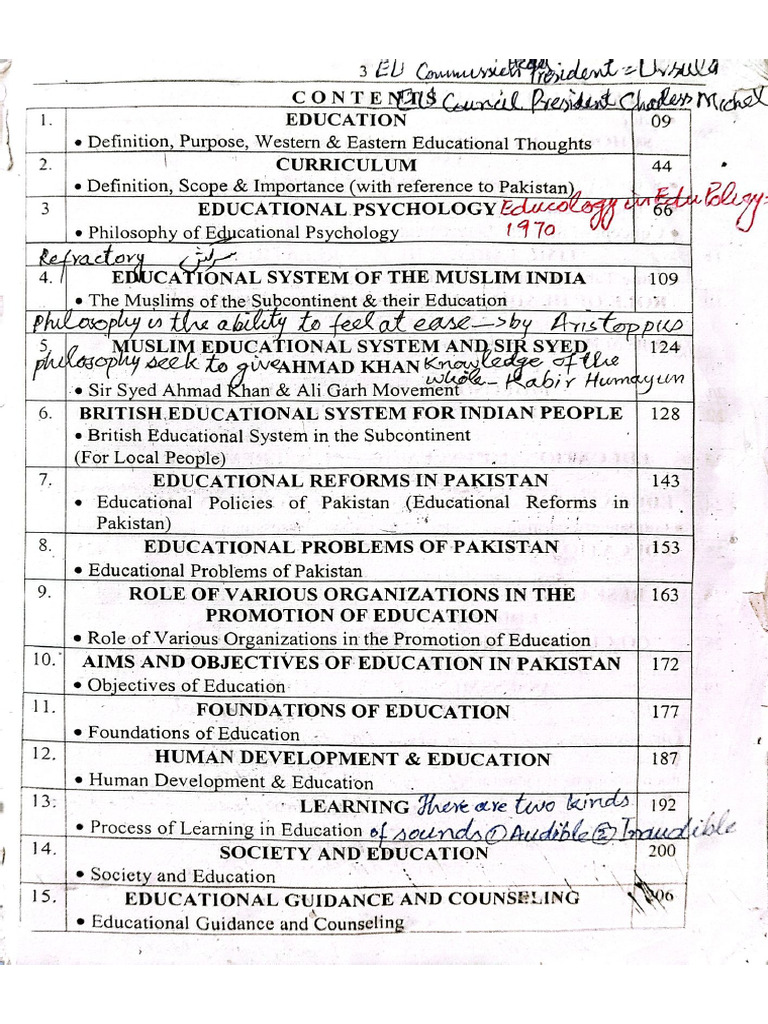 3 EU Commission President = Ursula
CONTENTS EU Council President Charless Michel
1. EDUCATION 09
• Definition, Purpose, Western & Eastern Educational Thoughts
2. CURRICULUM 44
• Definition, Scope & Importance (with reference to Pakistan)
3 EDUCATIONAL PSYCHOLOGY Educology in Edu Policy: 66
• Philosophy of Educational Psychology 1970
Refractory سرکش
4. EDUCATIONAL SYSTEM OF THE MUSLIM INDIA 109
• The Muslims of the Subcontinent & their Education
Philosophy is the ability to feel at ease → by Aristoppus
5. MUSLIM EDUCATIONAL SYSTEM AND SIR SYED 124
philosophy seek to give AHMAD KHAN knowledge of the
whole - Kabir Humayun
• Sir Syed Ahmad Khan & Ali Garh Movement
6. BRITISH EDUCATIONAL SYSTEM FOR INDIAN PEOPLE 128
• British Educational System in the Subcontinent
(For Local People)
7. EDUCATIONAL REFORMS IN PAKISTAN 143
• Educational Policies of Pakistan (Educational Reforms in
Pakistan)
8. EDUCATIONAL PROBLEMS OF PAKISTAN 153
• Educational Problems of Pakistan
9. ROLE OF VARIOUS ORGANIZATIONS IN THE 163
PROMOTION OF EDUCATION
• Role of Various Organizations in the Promotion of Education
10. AIMS AND OBJECTIVES OF EDUCATION IN PAKISTAN 172
• Objectives of Education
11. FOUNDATIONS OF EDUCATION 177
• Foundations of Education
12. HUMAN DEVELOPMENT & EDUCATION 187
• Human Development & Education
13. LEARNING There are two kinds 192
• Process of Learning in Education of sounds ① Audible ② Inaudible
14. SOCIETY AND EDUCATION 200
• Society and Education
15. EDUCATIONAL GUIDANCE AND COUNSELING 206
• Educational Guidance and Counseling